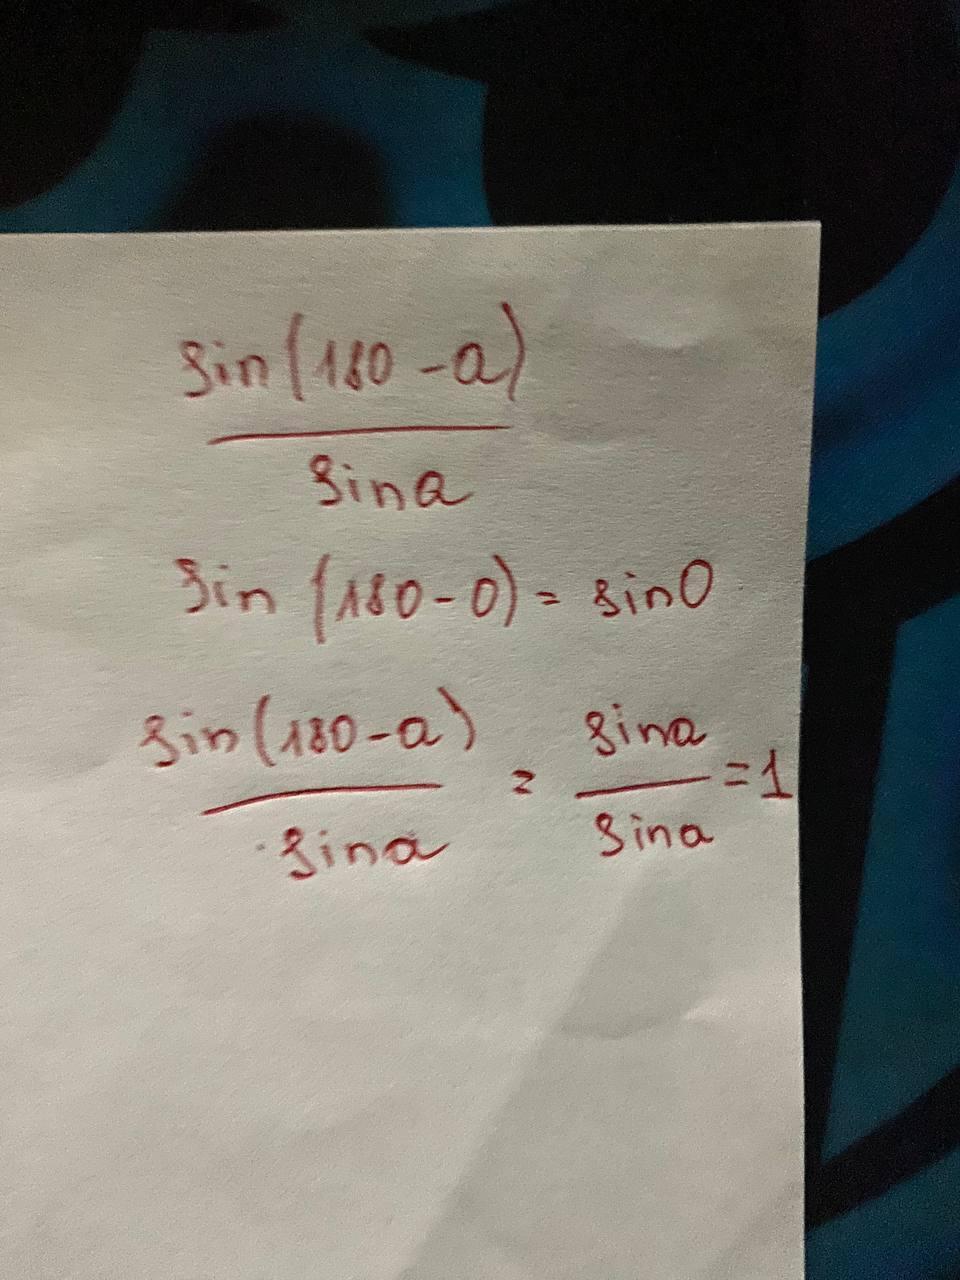 sin(180-a)
sina
sin (180-0) = sin0
sin(180-a) = sina = 1
sina sina